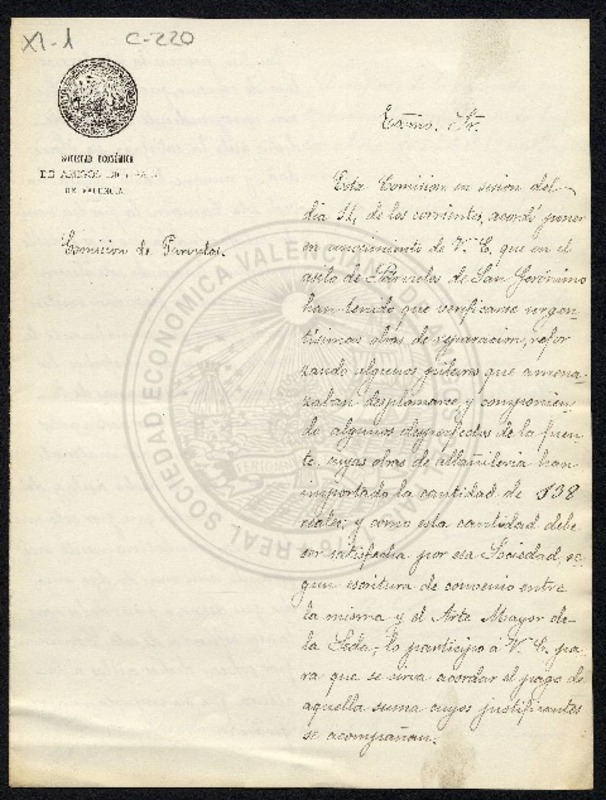 XI-1 C-220
SOCIEDAD ECONÓMICA
DE AMIGOS DEL PAIS
DE VALENCIA
Comision de Parvulos.
Excmo. Sr.
Esta Comision en sesion del
dia 11, de los corrientes, acordó poner
en conocimiento de V. E. que en el
asilo de Párvulos de San Gerónimo
han tenido que verificarse urgen-
tisimas obras de reparacion, refor
zando algunos pilares que amena-
zaban desplomarse, y componien-
do algunos desperfectos de la fuen-
te, cuyas obras de albañileria han
importado la cantidad de 138
reales; y como esta cantidad debe
ser satisfecha por esa Sociedad, se-
gun escritura de convenio entre
la misma y el Arte Mayor de
la Seda, lo participo á V. E. pa-
ra que se sirva acordar el pago de
aquella suma cuyos justificantes
se acompañan.
REAL SOCIEDAD ECONOMICA VALENCIANA DE AMIGOS DEL PAIS